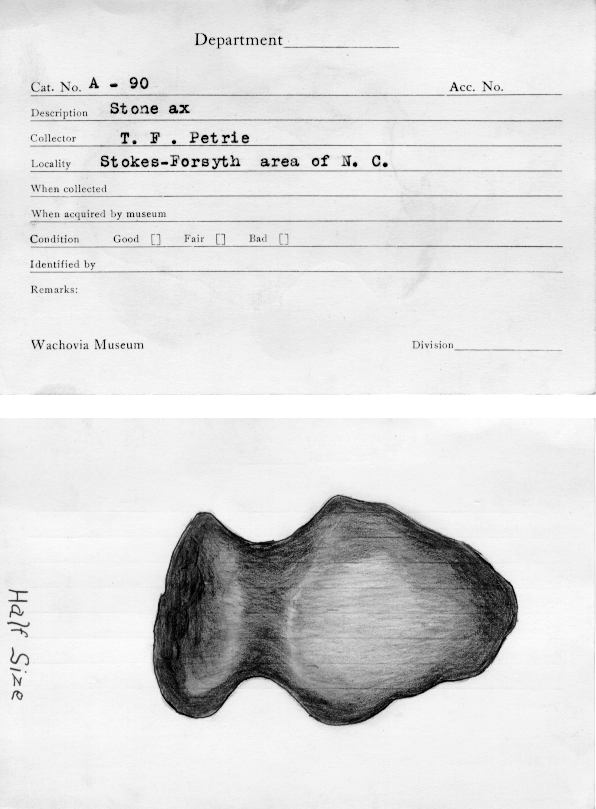 Department
Cat. No. A - 90 Acc. No.
Description Stone ax
Collector T. F . Petrie
Locality Stokes-Forsyth area of N. C.
When collected
When acquired by museum
Condition Good [] Fair [] Bad []
Identified by
Remarks:
Wachovia Museum Division
Half Size